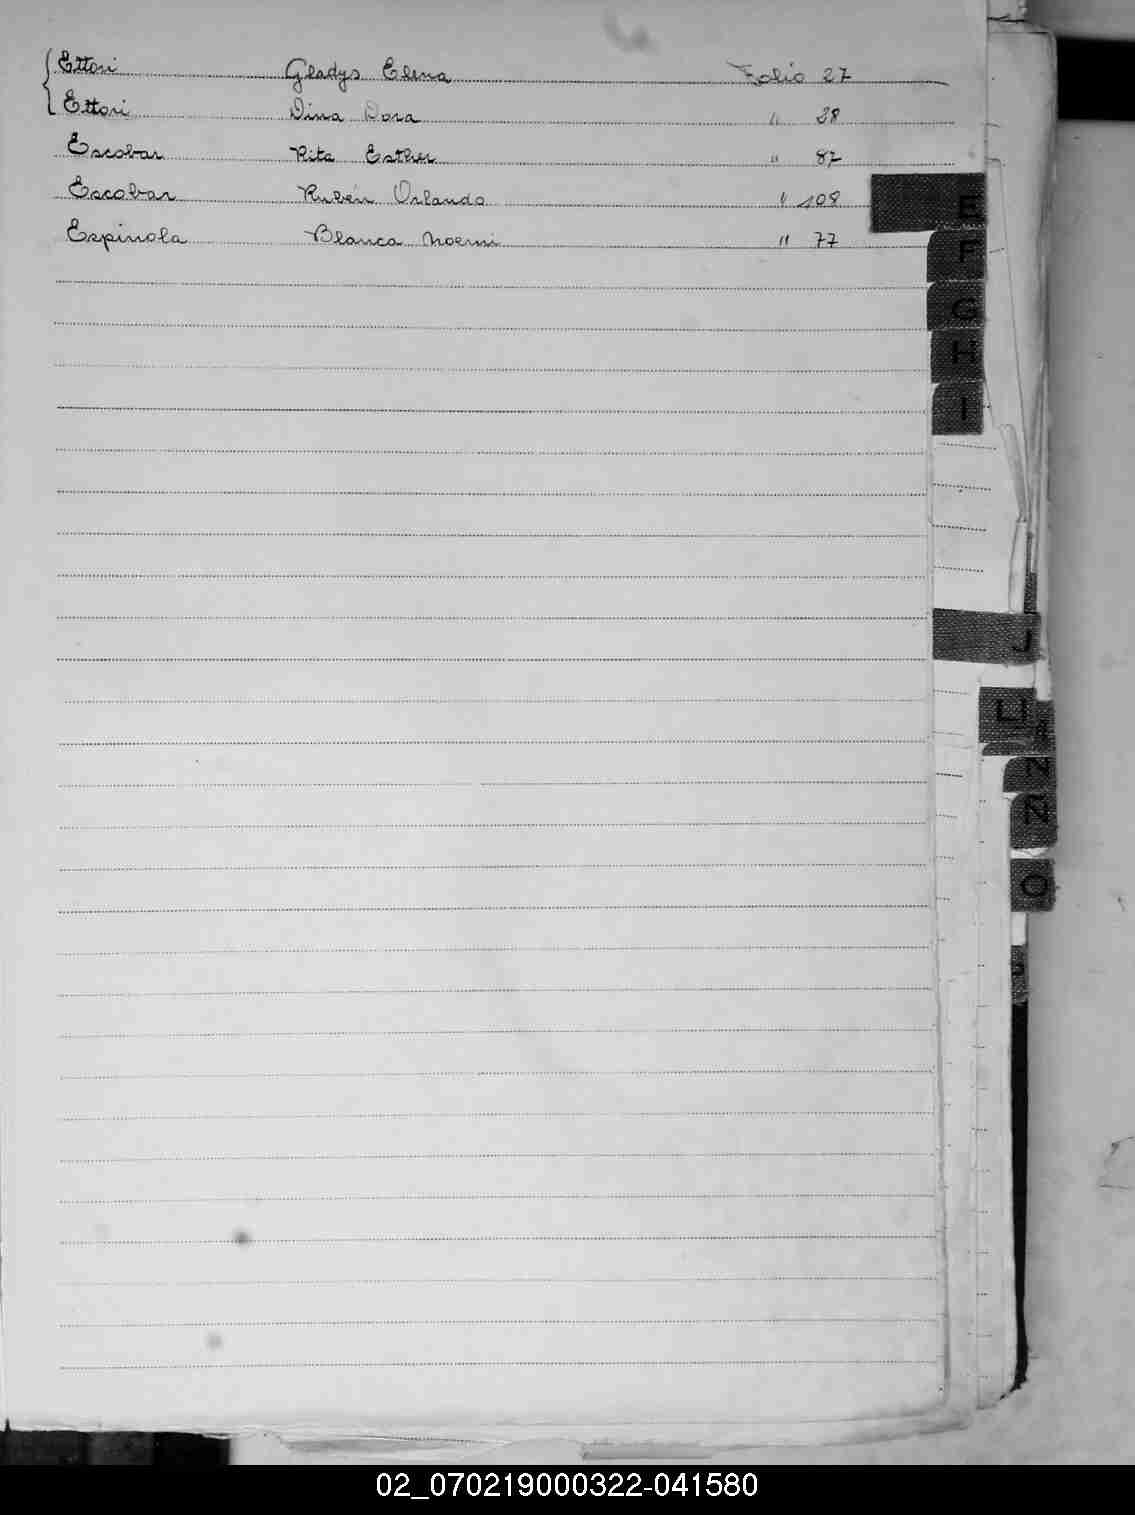 Ettori Gladys Elena Folio 27
Ettori Dina Dora " 28
Escobar Rita Esther " 87
Escobar Rubén Orlando " 108
Espinola Blanca Noemi " 77
E
F
G
H
I
J
Ll
N
Ñ
O
02_070219000322-041580